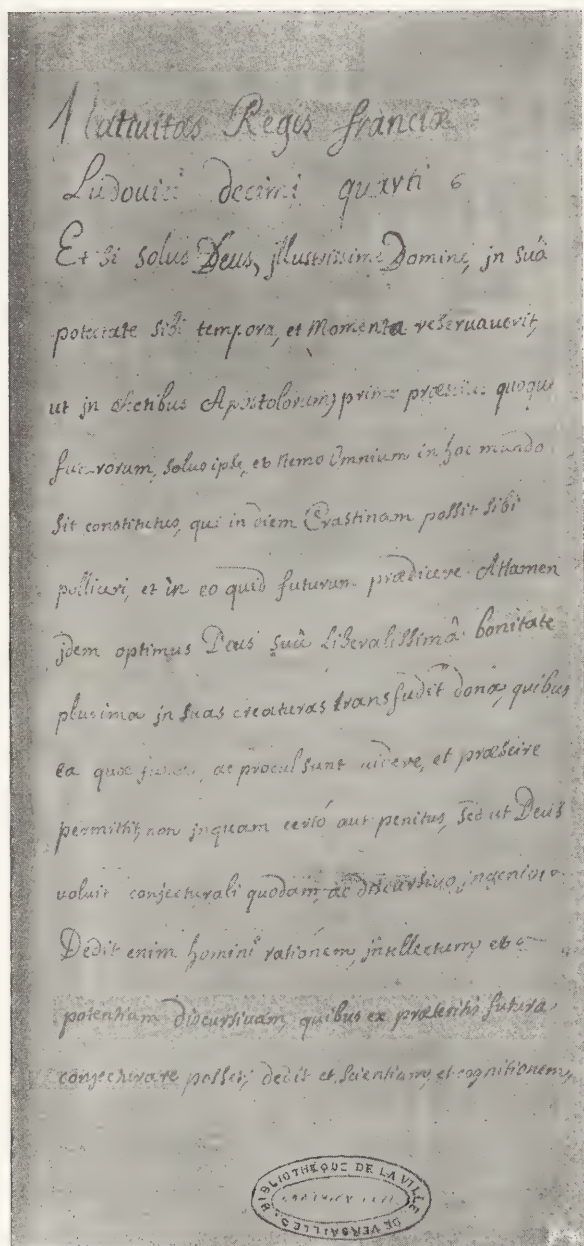 Natiuitas Regis franciæ
Ludouici decimi quarti 6
Et si solus Deus, jllustrissime Domine, jn suâ
potestate sibi tempora, et Momenta reseruauerit,
ut jn Actibus Apostolorum, primo præscius quoque
futurorum, solus ipse, et Nemo Omnium in hoc mundo
sit constitutus, qui in diem Crastinam possit sibi
polliceri, et in eo quid futurum prædicere. Attamen
jdem optimus Deus suâ Liberalissimâ bonitate
plurima jn suas creaturas transfudit dona, quibus
ea quæ ac procul sunt uidere, et præscire
permittit, non jnquam certó aut penitus, sed ut Deus
uoluit conjecturali quodam, ac discursiuo, jngenio.
Dedit enim homini rationem, jntellectum, et
potentiam discursiuam, quibus ex præteritis futura
conjecturare posset, dedit et scientiam, et cognitionem,
BIBLIOTHÈQUE DE LA VILLE
DE VERSAILLES